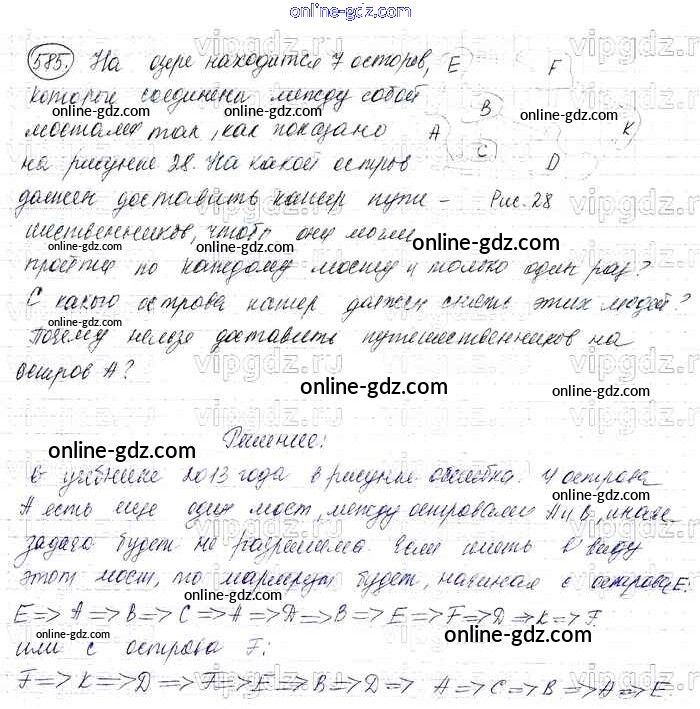 online-gdz.com
585. На озере находится 7 осторов, E F
которые соединены между собой B
мостами так, как показано A K
на рисунке 28. На какой остров C D
должен доставить катер путе- Рис. 28
шественников, чтобы они могли
пройти по каждому мосту и только один раз?
С какого острова катер должен снять этих людей?
Почему нельзя доставить путешественников на
остров А?
Решение:
В учебнике 2013 года в рисунке ошибка. У острова
А есть еще один мост, между островами А и В, иначе
задача будет не разрешима. Если иметь в виду
этот мост, то маршрут будет, начиная с острова E:
E=>A=>B=>C=>A=>D=>B=>E=>F=>D=>K=>F.
или с острова F:
F=>K=>D=>F=>E=>B=>D=> A=>C=>B=>A=>E.